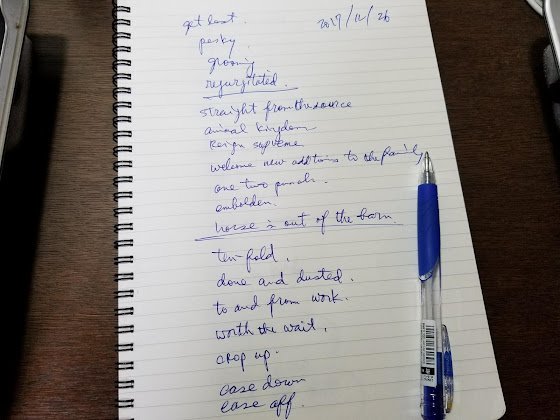 get lost. 2017/12/26
pesky.
grooming
regurgitated.
straight from the source
animal kingdom
Reign supreme
welcome new additions to the family
one two punch.
embolden.
horse is out of the barn.
ten-fold.
done and dusted.
to and from work.
worth the wait.
crop up.
ease down
ease off.